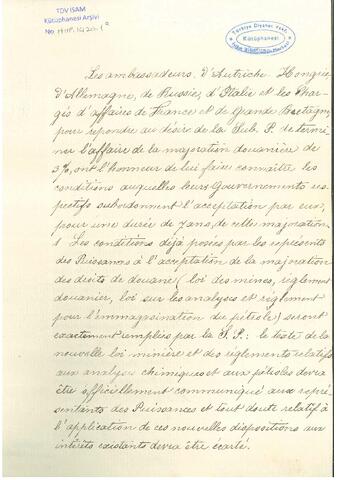 TDV İSAM
Kütüphanesi Arşivi
No HHP.1020-1
Türkiye Diyanet Vakfı
Kütüphanesi
Les ambassadeurs d'Autriche Hongrie
d'Allemagne, de Russie, d'Italie et les Char-
gés d'affaires de France et de Grande Bretagne,
pour repondre au désir de la Sub. P. de termi-
ner l'affaire de la majoration douanière de
3%, ont l'honneur de lui faire connaître les
conditions auxquelles leurs Gouvernements res-
pectifs subordonnent l'acceptation par eux,
pour une durée de 7 ans, de cette majoration.
1 Les conditions déjà posées par les représents
des Puissances à l'acceptation de la majoration
des droits de douane (loi des mines, règlement
douanier, loi sur les analyses et règlement
pour l'emmagasination du pétrole) seront
exactement remplies par la S.P.: le texte de la
nouvelle loi minière et des règlements relatifs
aux analyses chimiques et aux pétroles devra
être officiellement communiqué aux repré-
sentants des Puissances et tout doute relatif à
l'application de ces nouvelles dispositions aux
intérêts existants devra être écarté.